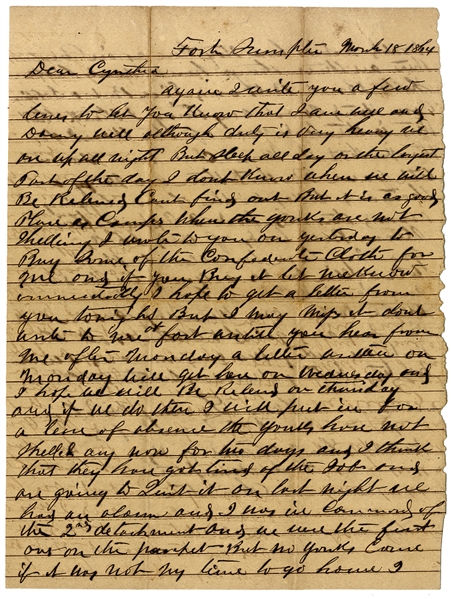 Fort Sumpter March 18 1864
Dear Cynthia
again I write you a few
lines to let you Know that I am well and
Doing well although duty is very heavy we
are up all night But sleep all day or the largest
Part of the day I dont Know when we will
Be Relieved Cant find out But it is as good
Place as Camps when the yanks are not
Shelling I wrote to you on yesterday to
Buy Some of the Confederate Cloth for
me and if you Buy it let me Know
immediately I hope to get a letter from
you tonight But I may miss it dont
write to me at fort until you hear from
me after Monday a letter written on
Monday will get here on Wednesday and
I hope we will Be Relieved on thursday
and if we do then I will put in for
a leave of absence the yanks have not
Shelled any now for two days and I think
that they have got tired of the Job and
are going to Quit it on last night we
had an alarm and I was in Command of
the 2nd detachment and we were the first
ones on the parapet But no yanks Come
if it was not my time to go home I